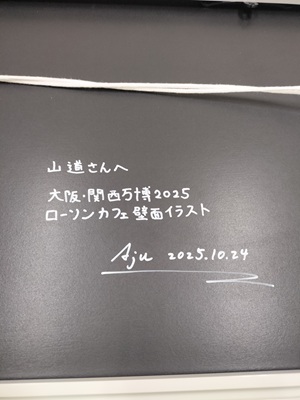 山道さんへ
大阪・関西万博2025
ローソンカフェ壁面イラスト
Aju 2025.10.24